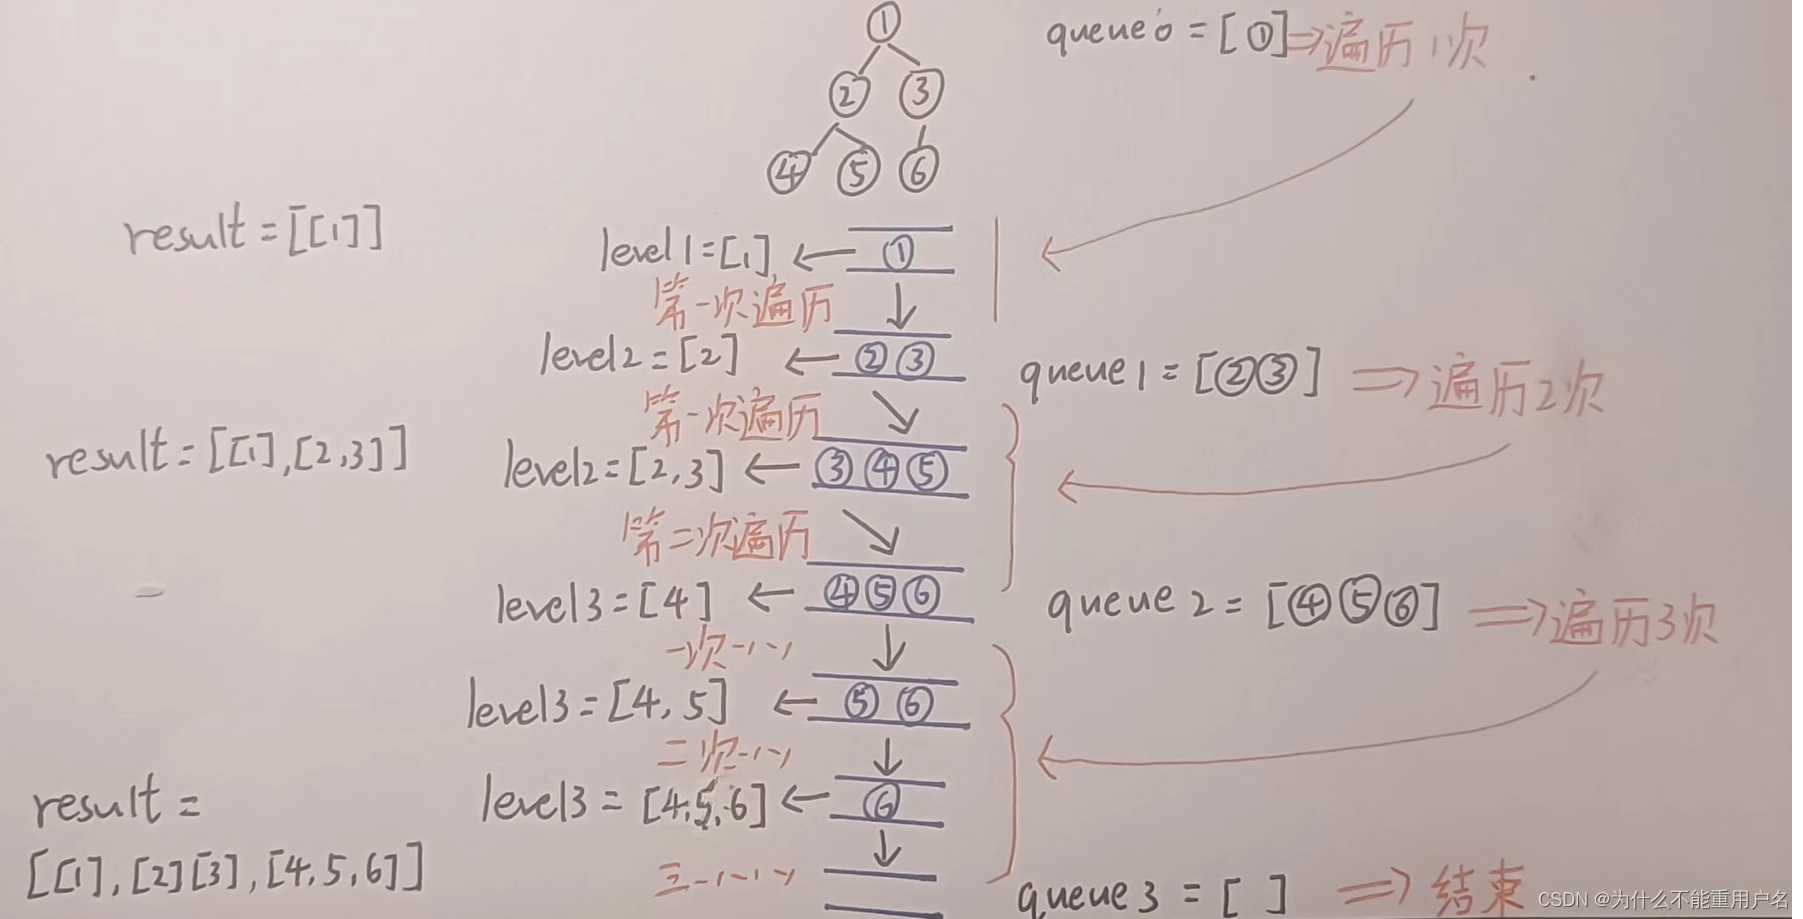 ①
queue0 = [①] ⇒ 遍历1次
② ③
④ ⑤ ⑥
result = [[1]]
level1 = [1] ← ①
第一次遍历
level2 = [2] ← ② ③
queue1 = [②③] ⇒ 遍历2次
第一次遍历
result = [[1],[2,3]]
level2 = [2,3] ← ③ ④ ⑤
第二次遍历
level3 = [4] ← ④ ⑤ ⑥
queue2 = [④⑤⑥] ⇒ 遍历3次
一次…
level3 = [4,5] ← ⑤ ⑥
二次…
level3 = [4,5,6] ← ⑥
result =
[[1],[2][3],[4,5,6]]
三…
queue3 = [ ] ⇒ 结束
CSDN @为什么不能重用户名